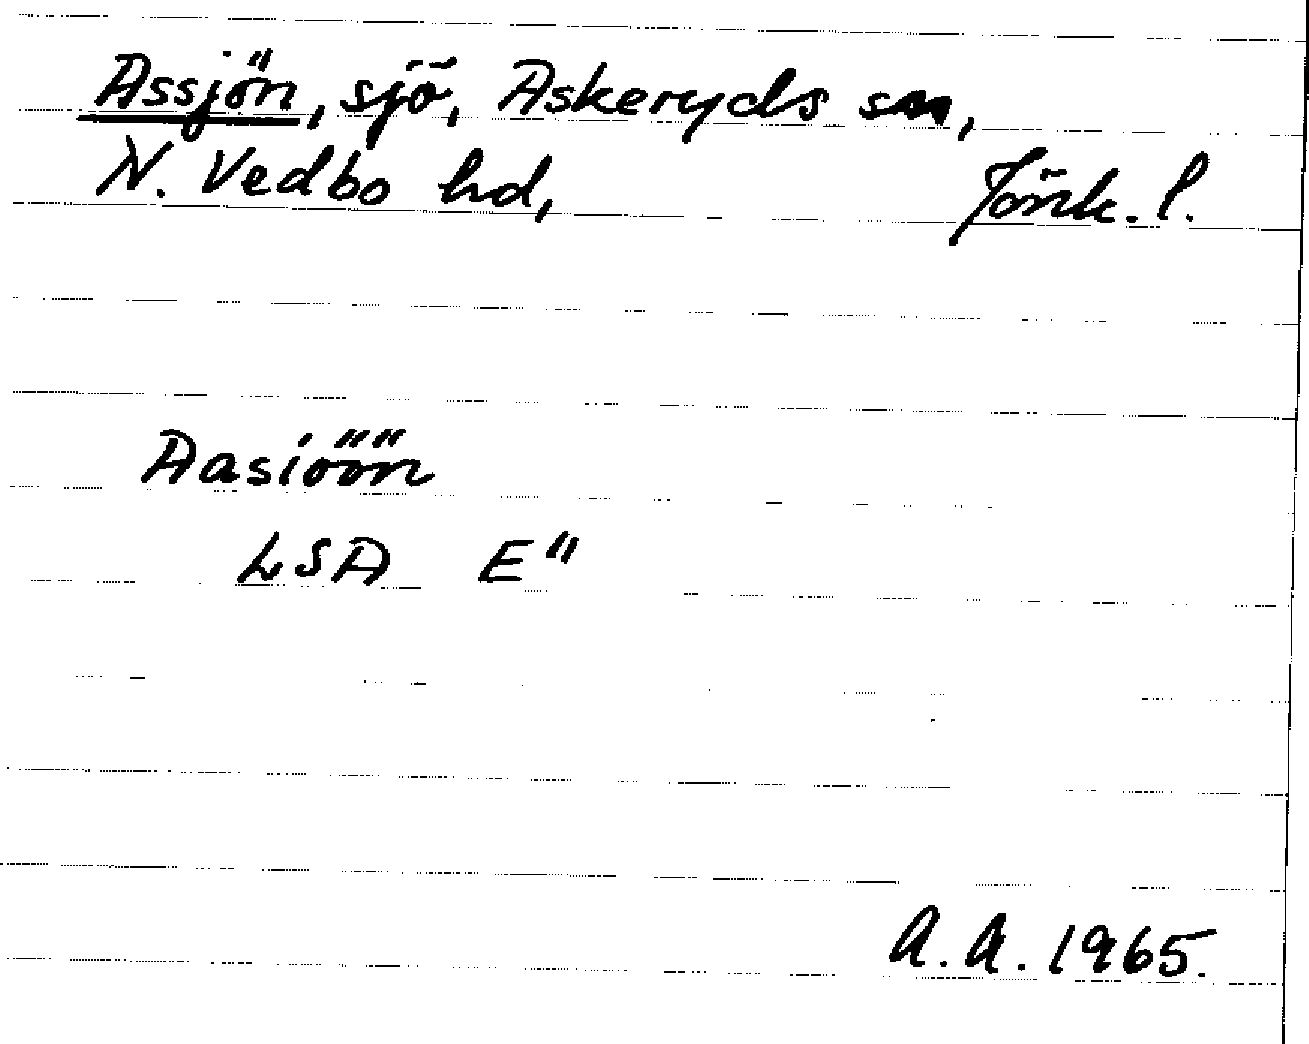 Assjön, sjö, Askeryds sn,
N. Vedbo hd, Jönk. l.
Aasiöön
LSA E"
A.A. 1965.